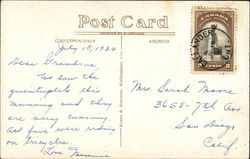 Post Card
CORRESPONDENCE
ADDRESS
July 18, 1939
Dear Grandma,
We saw the
quintuplets this
morning and they
are very cunning.
All five were riding
on tricycles.
Love
Mrs Sarah Moore
3658 - 7th Ave
San Diego
Calif.
CANADA